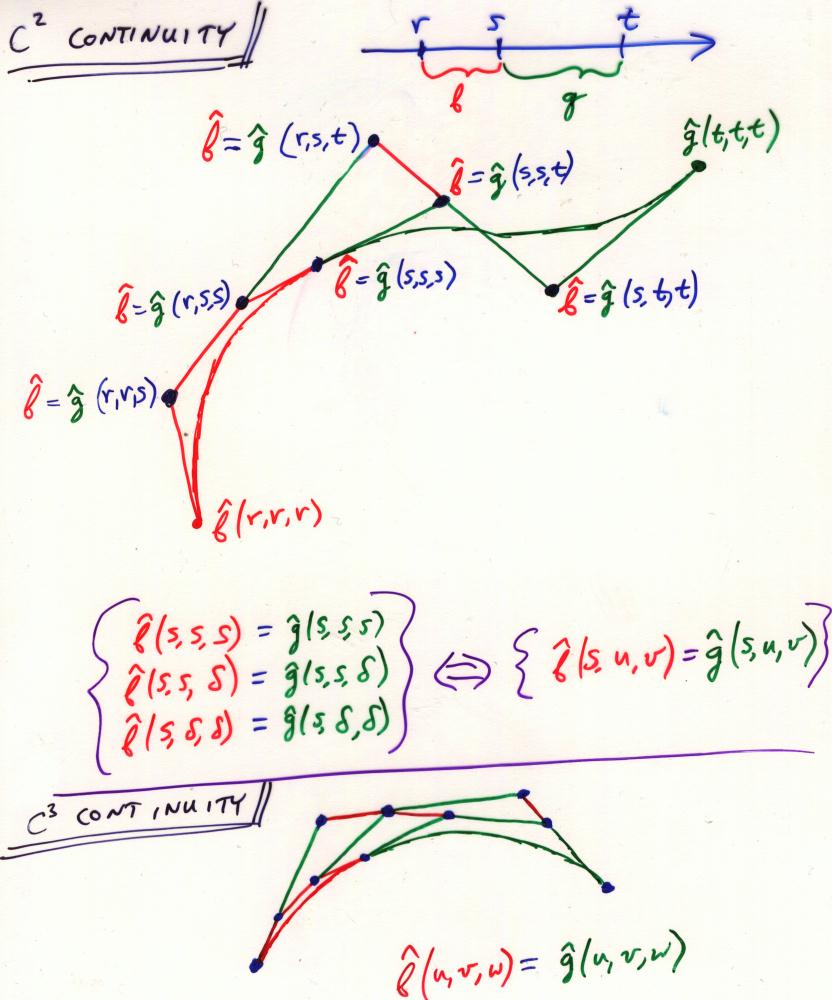 C² CONTINUITY
r s t
f g
f̂ = ĝ (r,s,t)
ĝ(t,t,t)
f̂ = ĝ(s,s,t)
f̂ = ĝ(r,s,s)
f̂ = ĝ(s,s,s)
f̂ = ĝ(s,t,t)
f̂ = ĝ (r,r,s)
f̂(r,r,r)
f̂(s,s,s) = ĝ(s,s,s)
f̂(s,s,δ) = ĝ(s,s,δ)
f̂(s,δ,δ) = ĝ(s,δ,δ)
⇔ { f̂(s,u,v) = ĝ(s,u,v) }
C³ CONTINUITY
f̂(u,v,w) = ĝ(u,v,w)